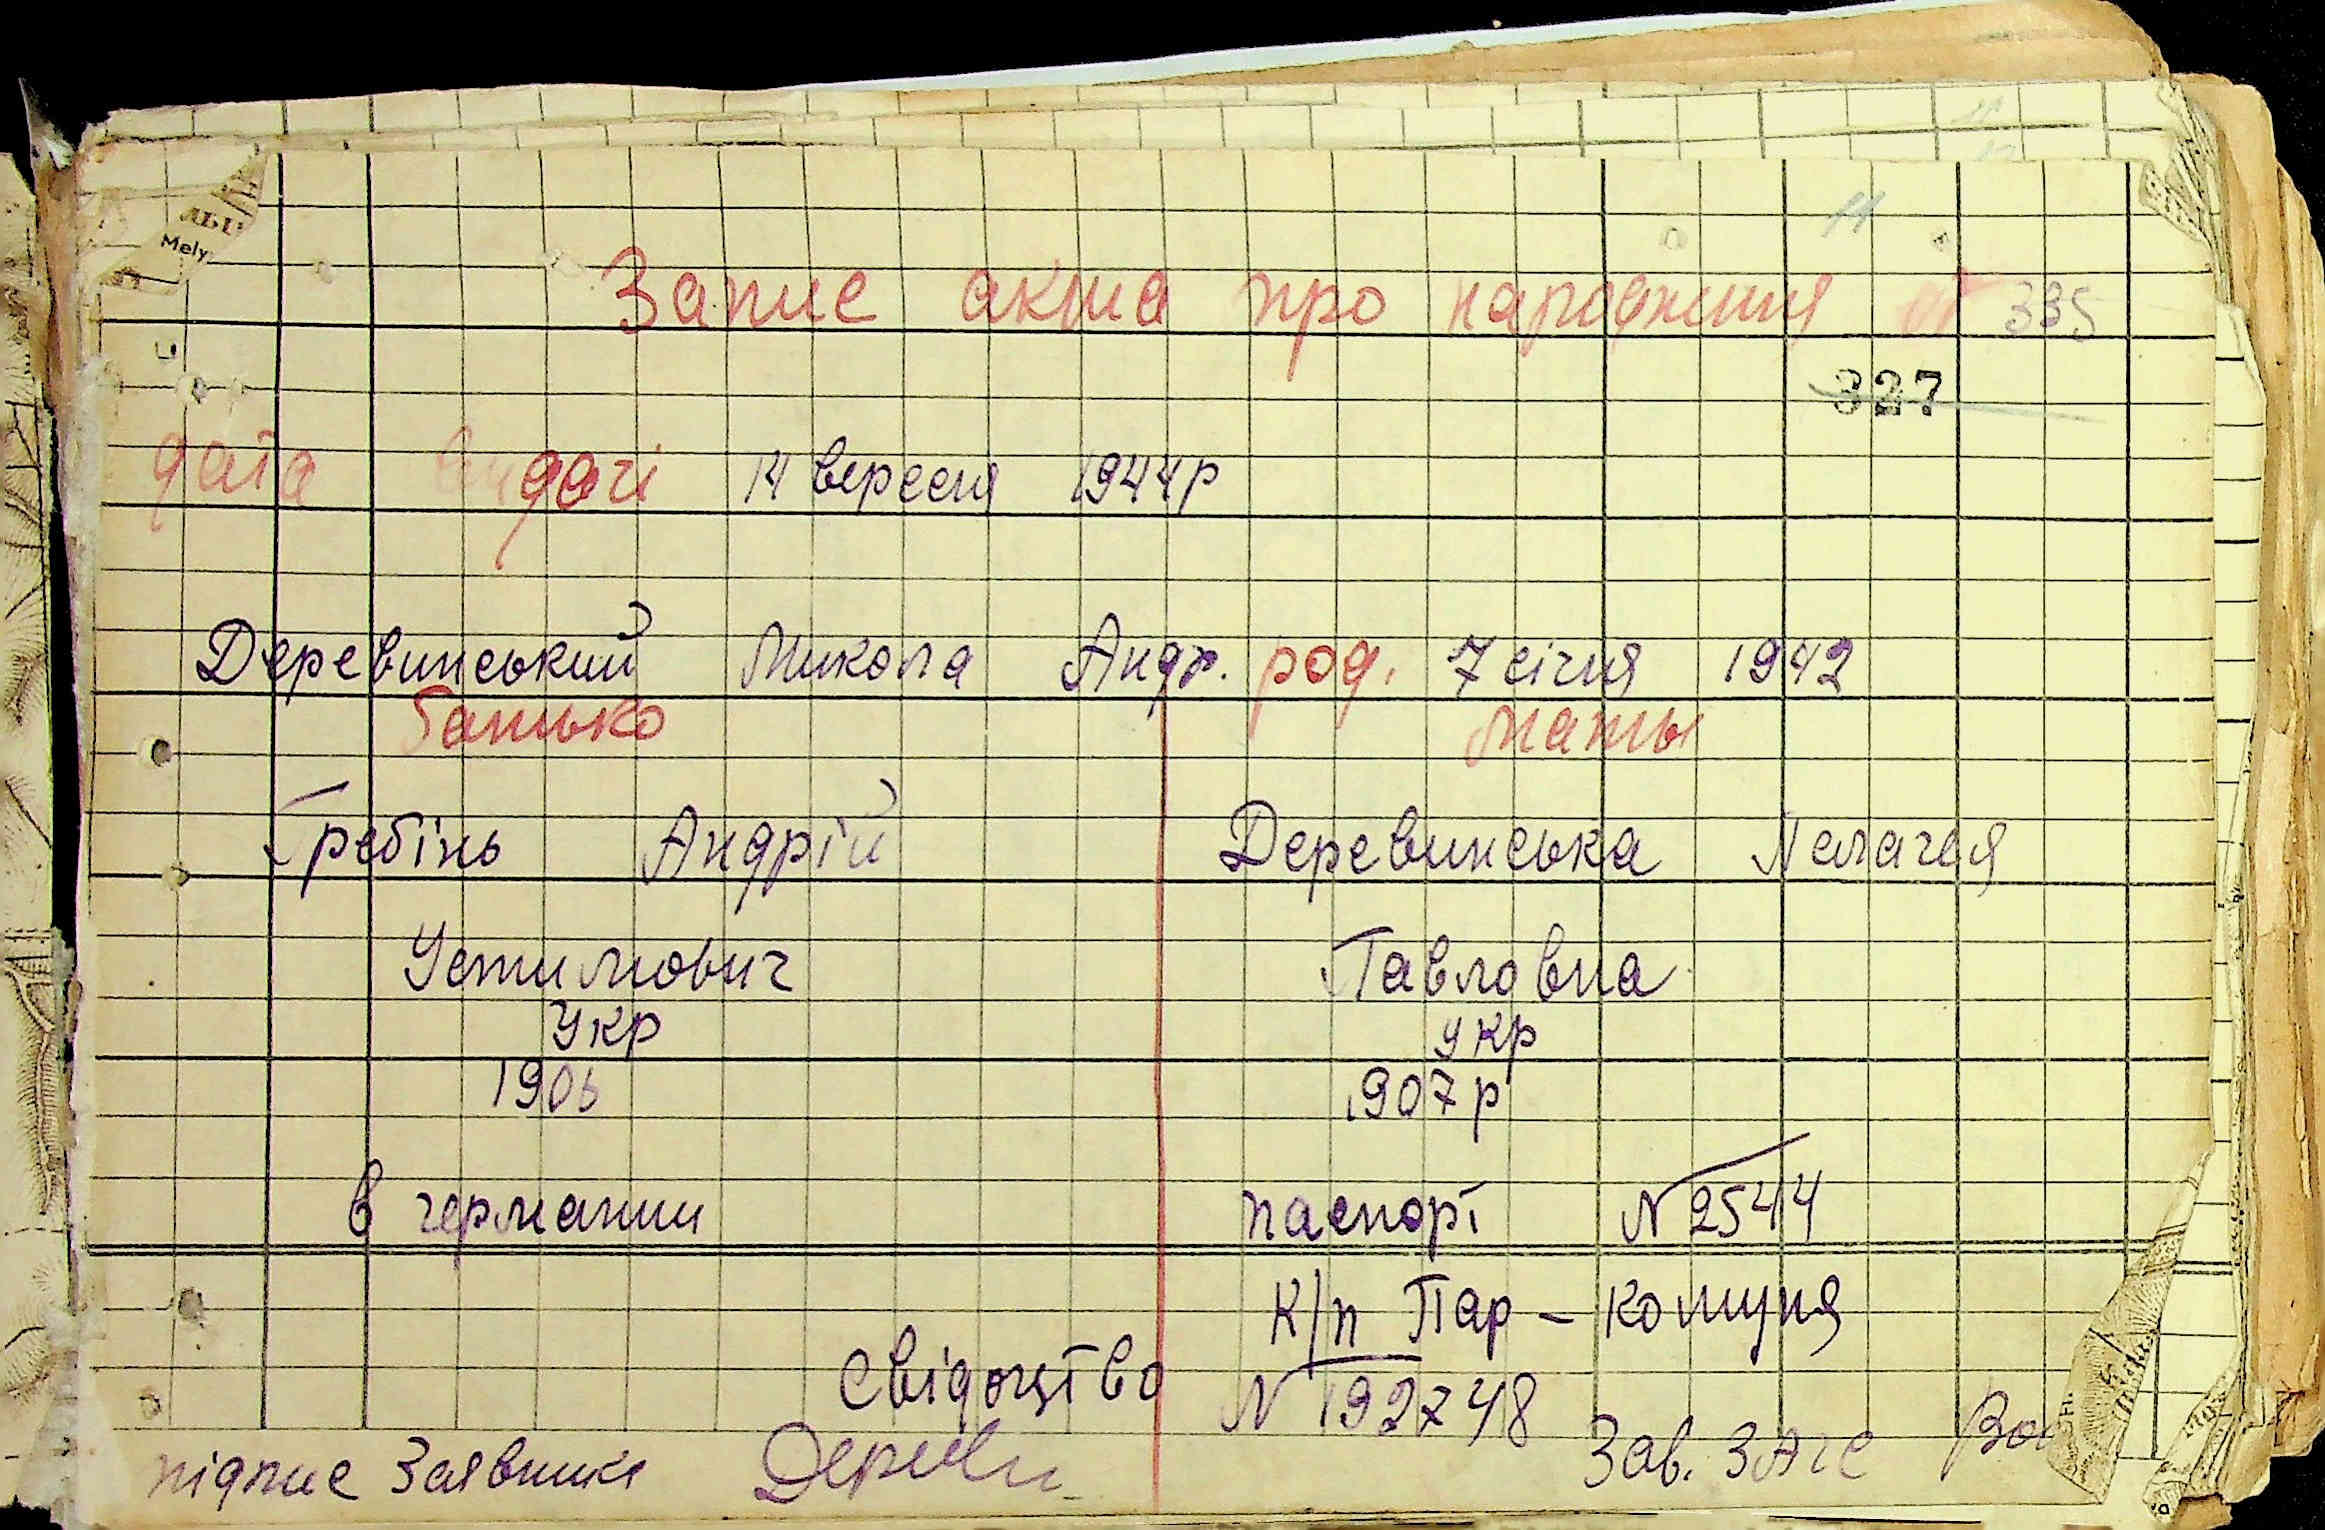 11
Запис акта про народження № 335
327
дата видачі 14 вересня 1944р
Деревинський Микола Андр. род. 7 січня 1942
батько маты
Гребінь Андрій Деревинська Пелагея
Устимович Павловна
Укр Укр
1906 1907р
в германии паспорт N 2544
к/п Пар - комуня
Свідоцтво N 192748
підпис Заявника Дереви Зав. ЗАГС
ЛЬІ
Mely